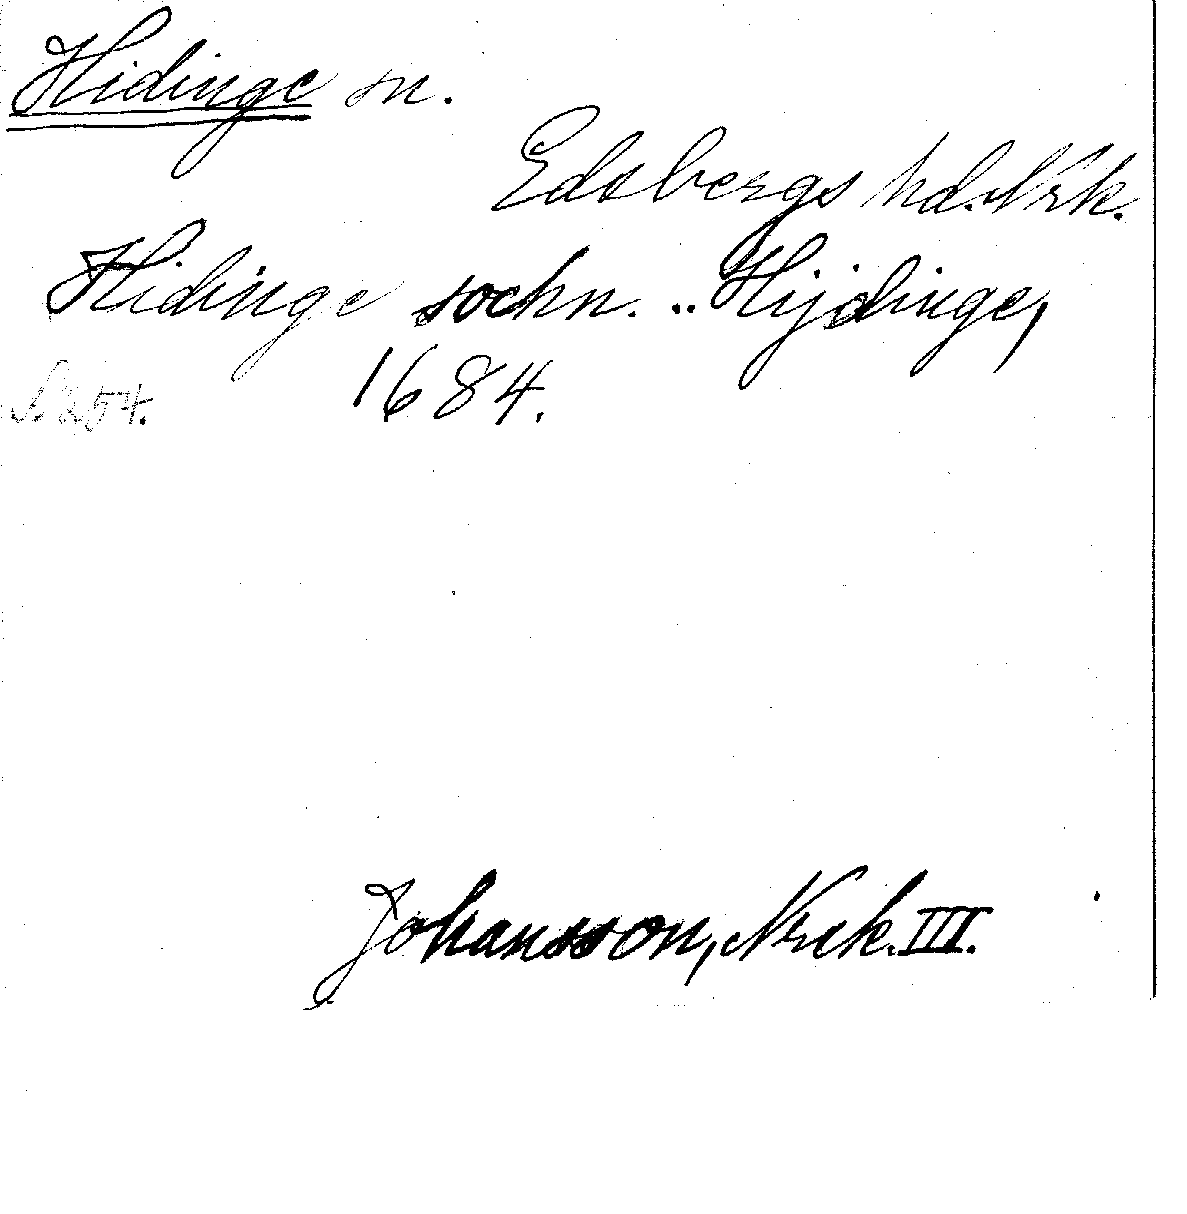 Hidinge sn.
Edsbergs hd. Nrk.
Hidinge sochn. .. Hijdinge,
S. 254. 1684.
Johansson, Nrk. III.